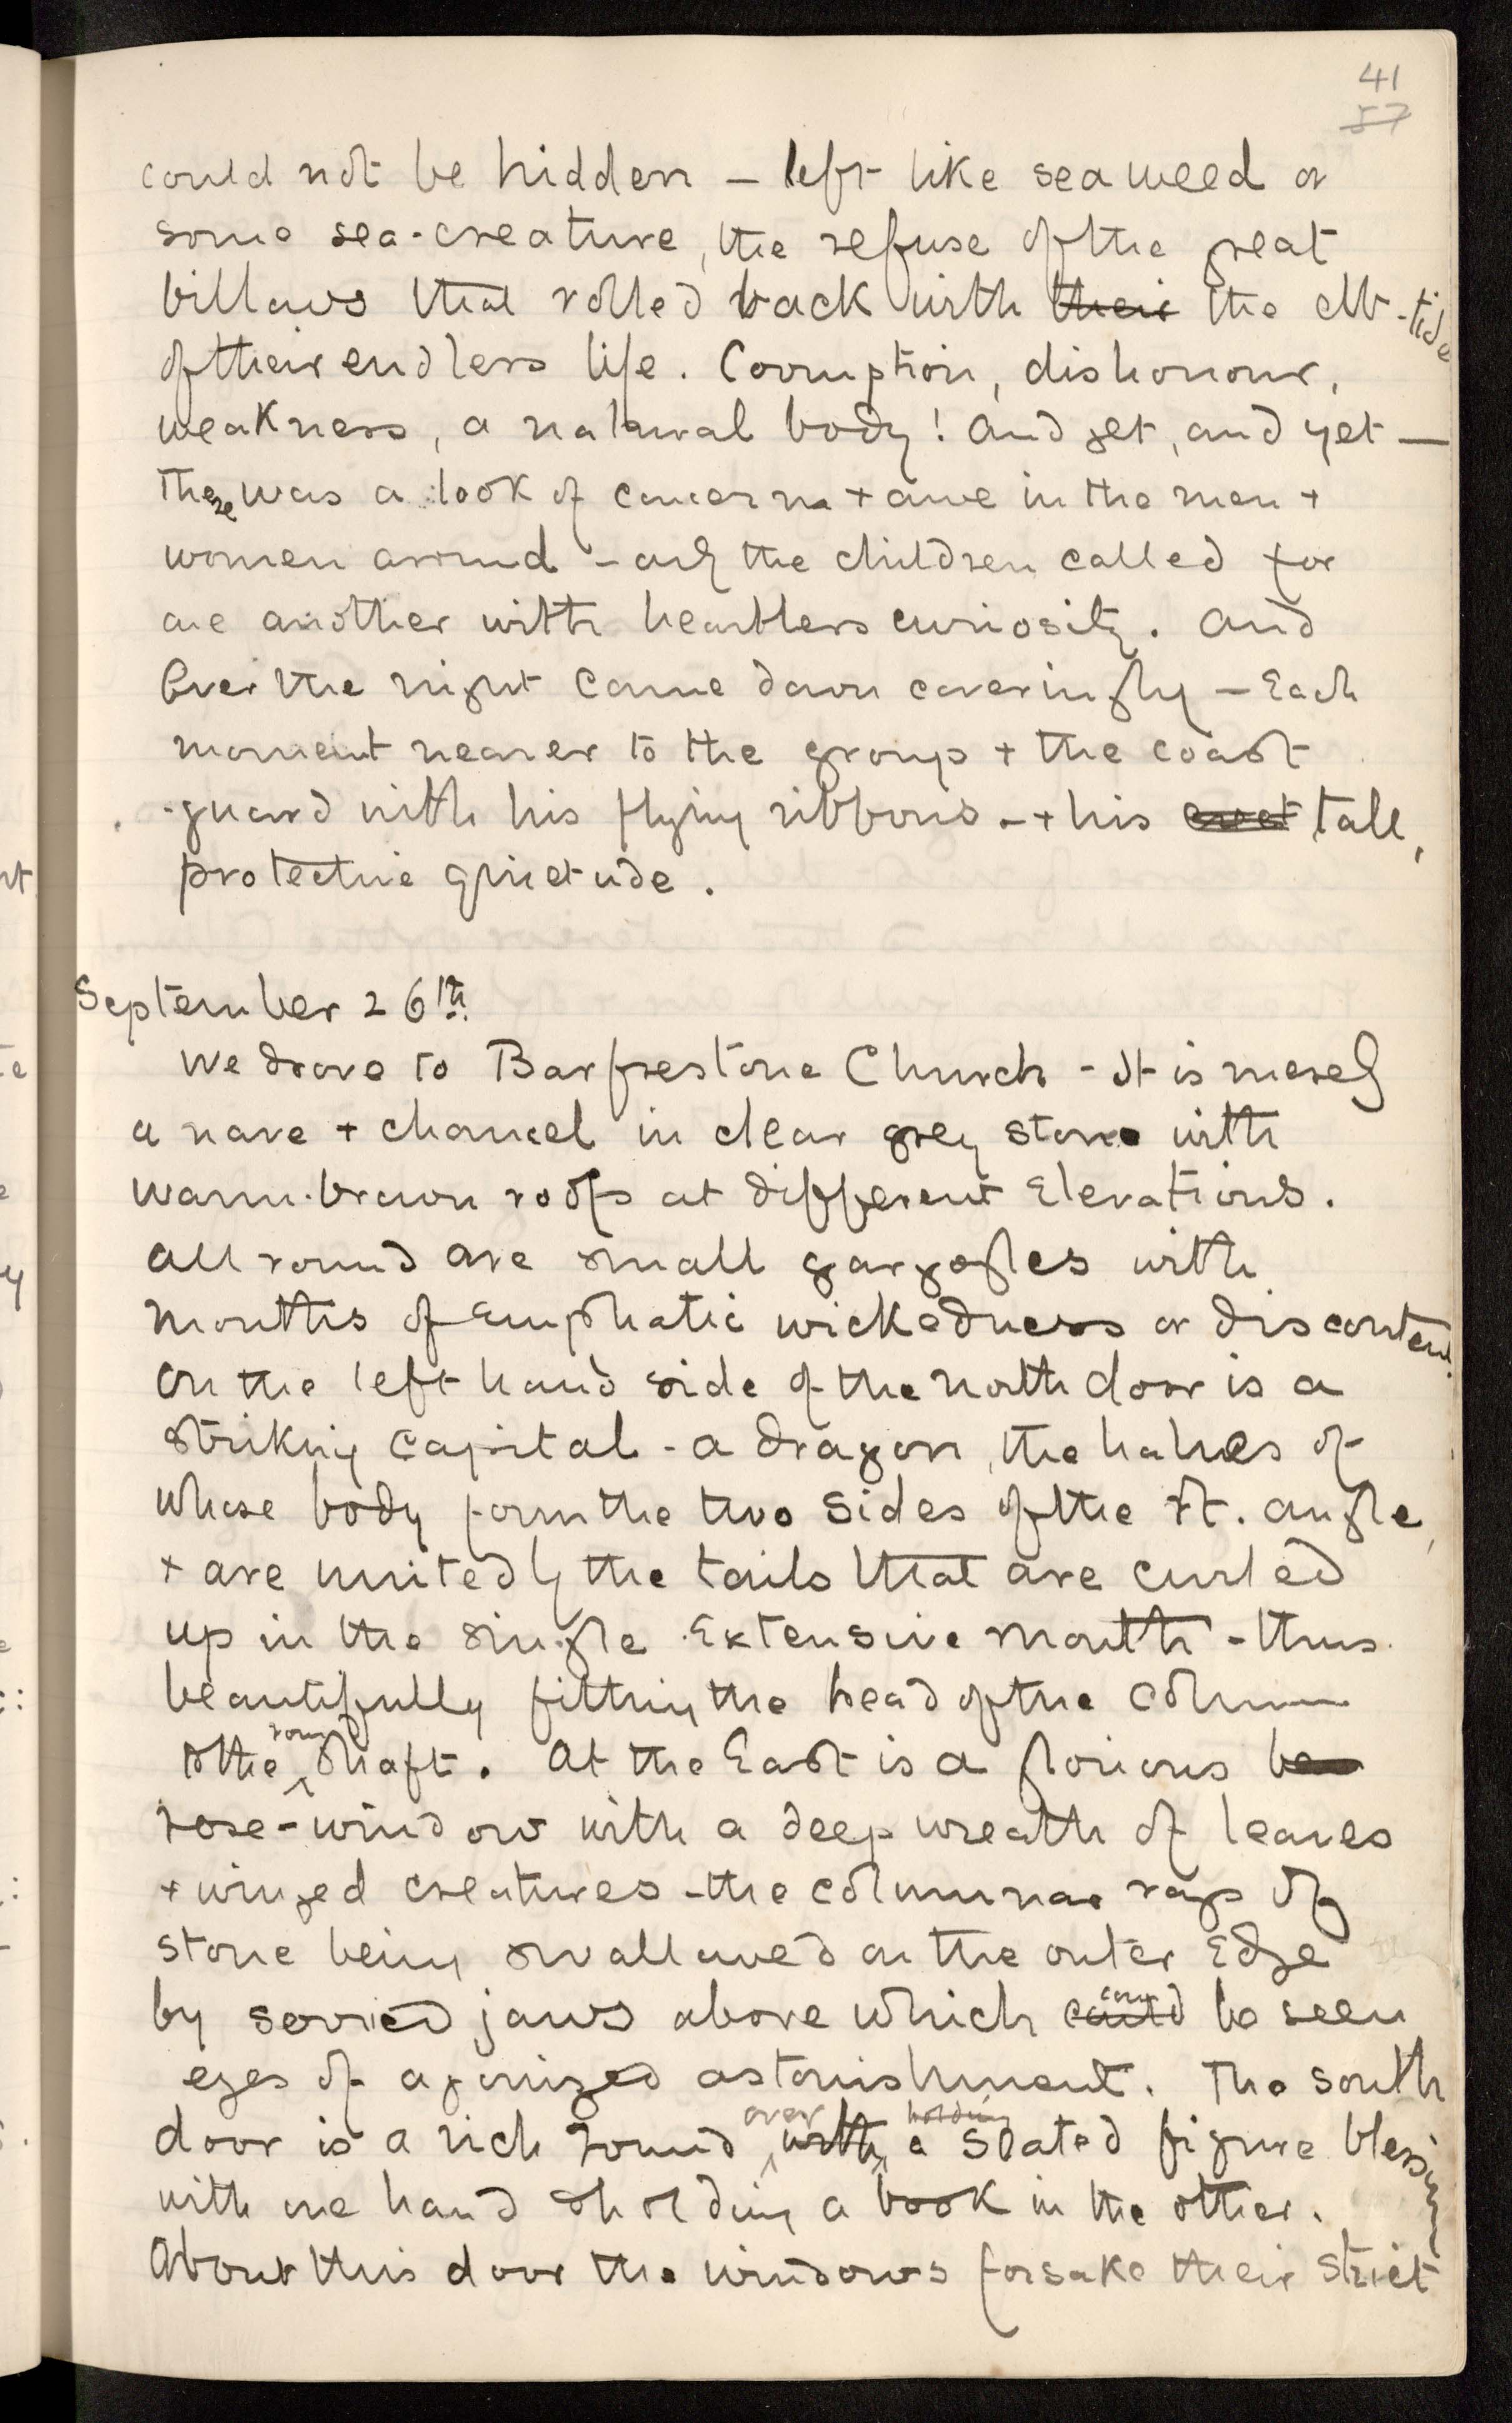 41
57
could not be hidden – left like seaweed or
some sea-creature, the refuse of the great
billows that rolled back with their the ebb-tide
of their endless life. Corruption, dishonour,
weakness, a natural body! And yet, and yet —
There was a look of concern + awe in the men +
women around – only the children called for
one another with heartless curiosity. And
over the night came down coveringly – Each
moment nearer to the group + the coast
-guard with his flying ribbons – + his tall,
protective quietude.
September 26th.
We drove to Barfrestone Church – It is merely
a nave + chancel in clear grey stone with
warm-brown roofs at different Elevations.
All round are small gargoyles with
mouths of Emphatic wickedness or discontent.
On the left hand side of the north door is a
striking capital – a dragon, the halves of
whose body form the two sides of the rt. angle,
+ are united by the tails that are curled
up in the single Extensive mouth – thus
beautifully fitting the head of the column
to the round shaft. At the East is a glorious
rose-window with a deep wreath of leaves
+ winged creatures – the columnar rays of
stone being swallowed on the outer Edge
by serried jaws above which could can be seen
eyes of agonized astonishment. The South
door is a rich round with over holding a seated figure blessing
with one hand & holding a book in the other.
About this door the windows forsake their strict